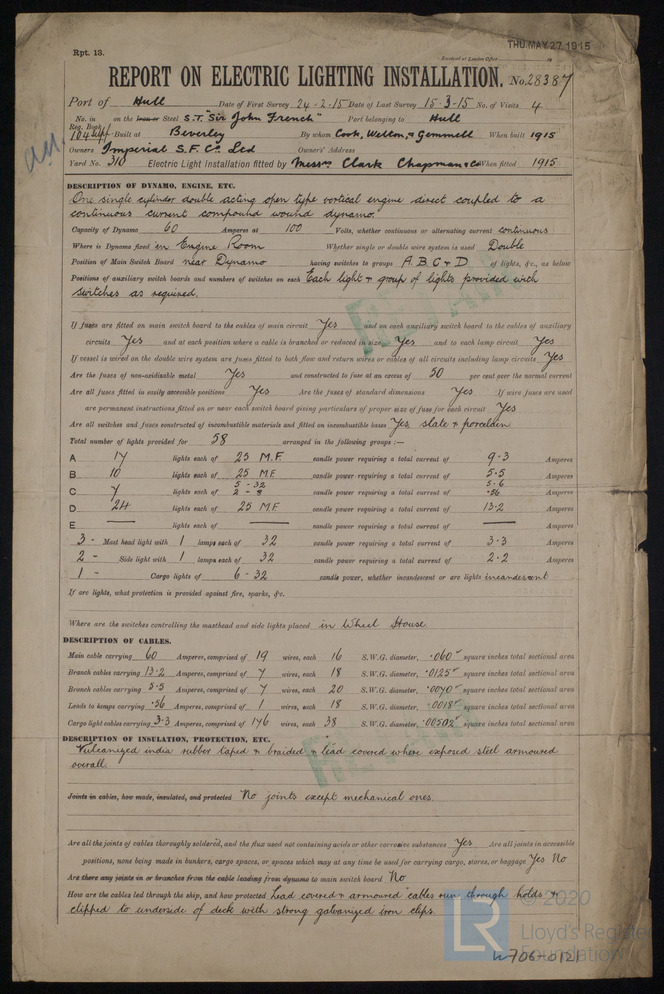 Rpt. 13.
THU. MAY 27 1915
Received at London Office
REPORT ON ELECTRIC LIGHTING INSTALLATION. No. 28387
Port of Hull Date of First Survey 24-2-15 Date of Last Survey 15-3-15 No. of Visits 4
No. in on the Iron or Steel S.T. "Sir John French" Port belonging to Hull
Reg. Book
Built at Beverley By whom Cook, Welton, & Gemmell When built 1915
Owners Imperial S.F. Co Ltd Owners' Address
Yard No. 310 Electric Light Installation fitted by Messrs Clark Chapman & Co When fitted 1915
DESCRIPTION OF DYNAMO, ENGINE, ETC.
One single cylinder double acting open type vertical engine direct coupled to a
continuous current compound wound dynamo.
Capacity of Dynamo 60 Amperes at 100 Volts, whether continuous or alternating current continuous
Where is Dynamo fixed in Engine Room Whether single or double wire system is used Double
Position of Main Switch Board near Dynamo having switches to groups A. B. C & D of lights, &c., as below
Positions of auxiliary switch boards and numbers of switches on each Each light & group of lights provided with
switches as required.
If fuses are fitted on main switch board to the cables of main circuit Yes and on each auxiliary switch board to the cables of auxiliary
circuits Yes and at each position where a cable is branched or reduced in size Yes and to each lamp circuit Yes
If vessel is wired on the double wire system are fuses fitted to both flow and return wires or cables of all circuits including lamp circuits Yes
Are the fuses of non-oxidizable metal Yes and constructed to fuse at an excess of 50 per cent over the normal current
Are all fuses fitted in easily accessible positions Yes Are the fuses of standard dimensions Yes If wire fuses are used
are permanent instructions fitted on or near each switch board giving particulars of proper size of fuse for each circuit Yes
Are all switches and fuses constructed of incombustible materials and fitted on incombustible bases Yes, slate & porcelain
Total number of lights provided for 58 arranged in the following groups :—
A 17 lights each of 25 M.F. candle power requiring a total current of 9.3 Amperes
B 10 lights each of 25 M.F. candle power requiring a total current of 5.5 Amperes
C 7 lights each of 5 - 32 2 - 8 candle power requiring a total current of 5.6 .56 Amperes
D 24 lights each of 25 M.F. candle power requiring a total current of 13.2 Amperes
E — lights each of — candle power requiring a total current of — Amperes
3 - Mast head light with 1 lamps each of 32 candle power requiring a total current of 3.3 Amperes
2 - Side light with 1 lamps each of 32 candle power requiring a total current of 2.2 Amperes
1 - Cargo lights of 6 - 32 candle power, whether incandescent or arc lights incandescent
If arc lights, what protection is provided against fire, sparks, &c.
Where are the switches controlling the masthead and side lights placed in Wheel House.
DESCRIPTION OF CABLES.
Main cable carrying 60 Amperes, comprised of 19 wires, each 16 S.W.G. diameter, .060 square inches total sectional area
Branch cables carrying 13.2 Amperes, comprised of 7 wires, each 18 S.W.G. diameter, .0125 square inches total sectional area
Branch cables carrying 5.5 Amperes, comprised of 7 wires, each 20 S.W.G. diameter, .0070 square inches total sectional area
Leads to lamps carrying .56 Amperes, comprised of 1 wires, each 18 S.W.G. diameter, .0018 square inches total sectional area
Cargo light cables carrying 3.3 Amperes, comprised of 146 wires, each 38 S.W.G. diameter, .00502 square inches total sectional area
DESCRIPTION OF INSULATION, PROTECTION, ETC.
Vulcanized india rubber taped & braided & lead covered where exposed steel armoured
overall.
Joints in cables, how made, insulated, and protected No joints except mechanical ones.
Are all the joints of cables thoroughly soldered, and the flux used not containing acids or other corrosive substances Yes Are all joints in accessible
positions, none being made in bunkers, cargo spaces, or spaces which may at any time be used for carrying cargo, stores, or baggage Yes No
Are there any joints in or branches from the cable leading from dynamo to main switch board No
How are the cables led through the ship, and how protected Lead covered & armoured cables run through holds &
clipped to underside of deck with strong galvanized iron clips.
© 2020
LR
Lloyd's Register
Foundation
W706-0121